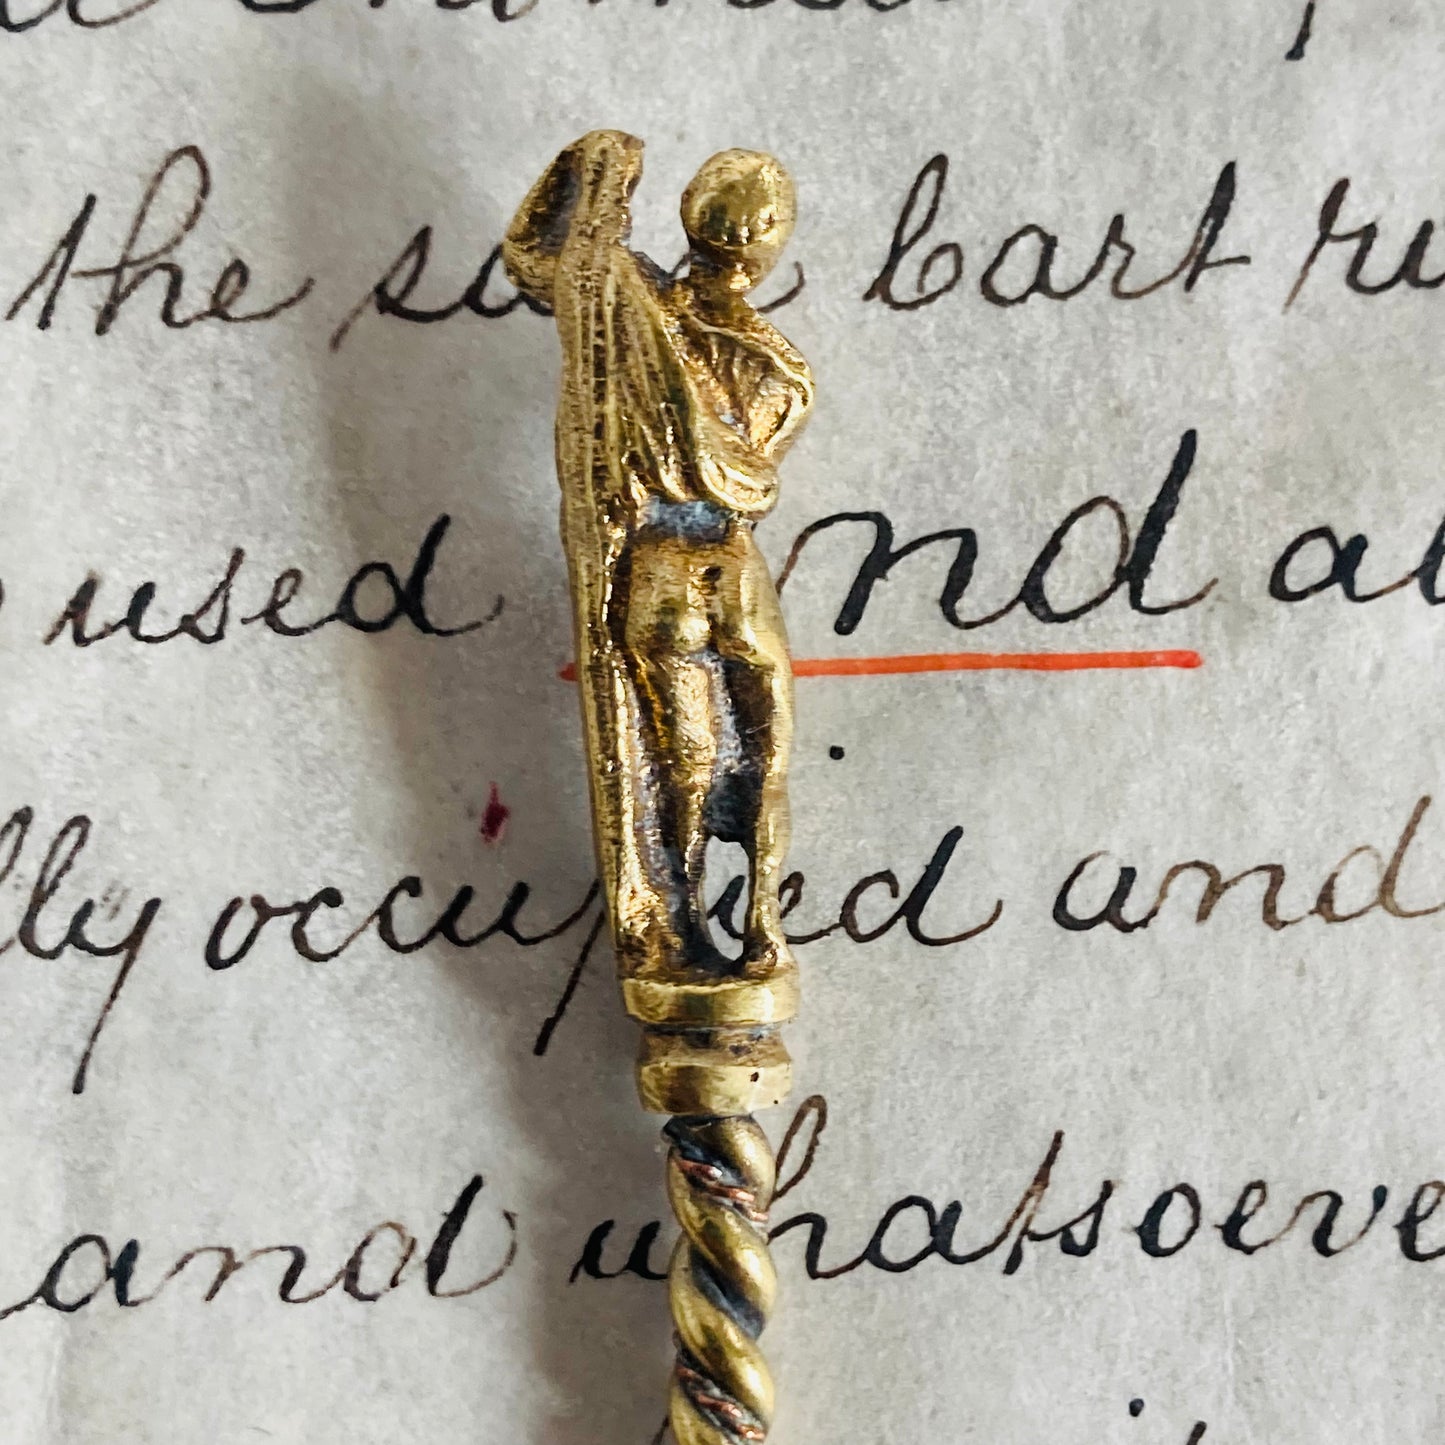 the s cart ru
used nd al
lly occupied and
and whatsoeve